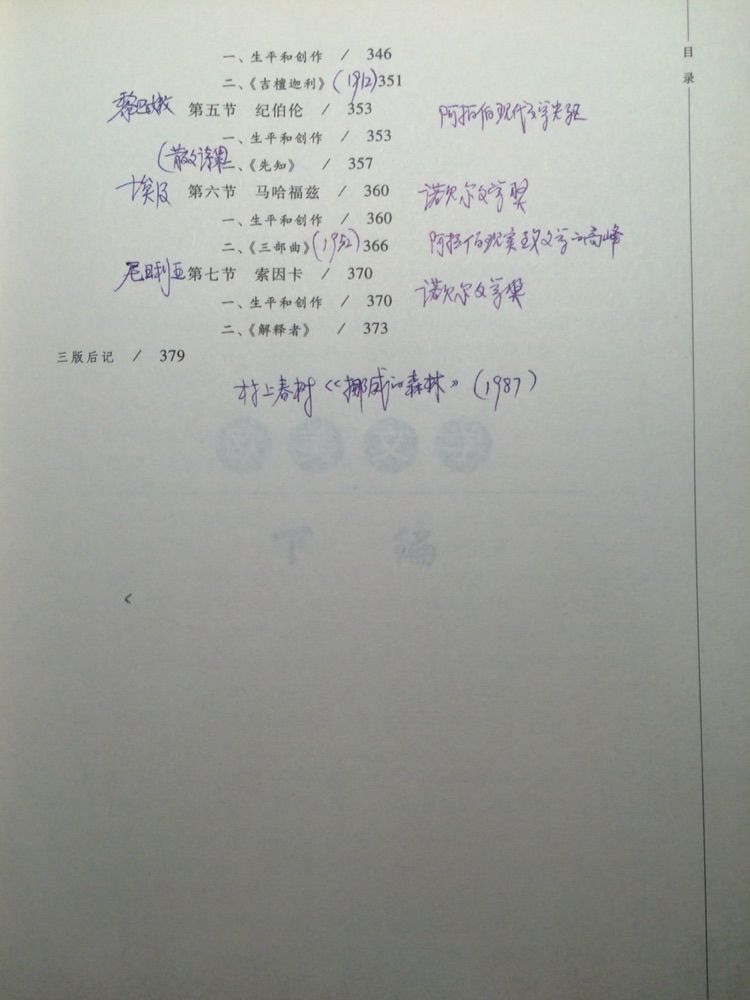 目录
一、生平和创作 / 346
二、《吉檀迦利》(1912)351
黎巴嫩 第五节 纪伯伦 / 353 阿拉伯现代文学先驱
一、生平和创作 / 353
(散文诗集)二、《先知》 / 357
埃及 第六节 马哈福兹 / 360 诺贝尔文学奖
一、生平和创作 / 360
二、《三部曲》(1952)366 阿拉伯现实主义文学的高峰
尼日利亚 第七节 索因卡 / 370
一、生平和创作 / 370 诺贝尔文学奖
二、《解释者》 / 373
三版后记 / 379
村上春树《挪威的森林》(1987)
下编